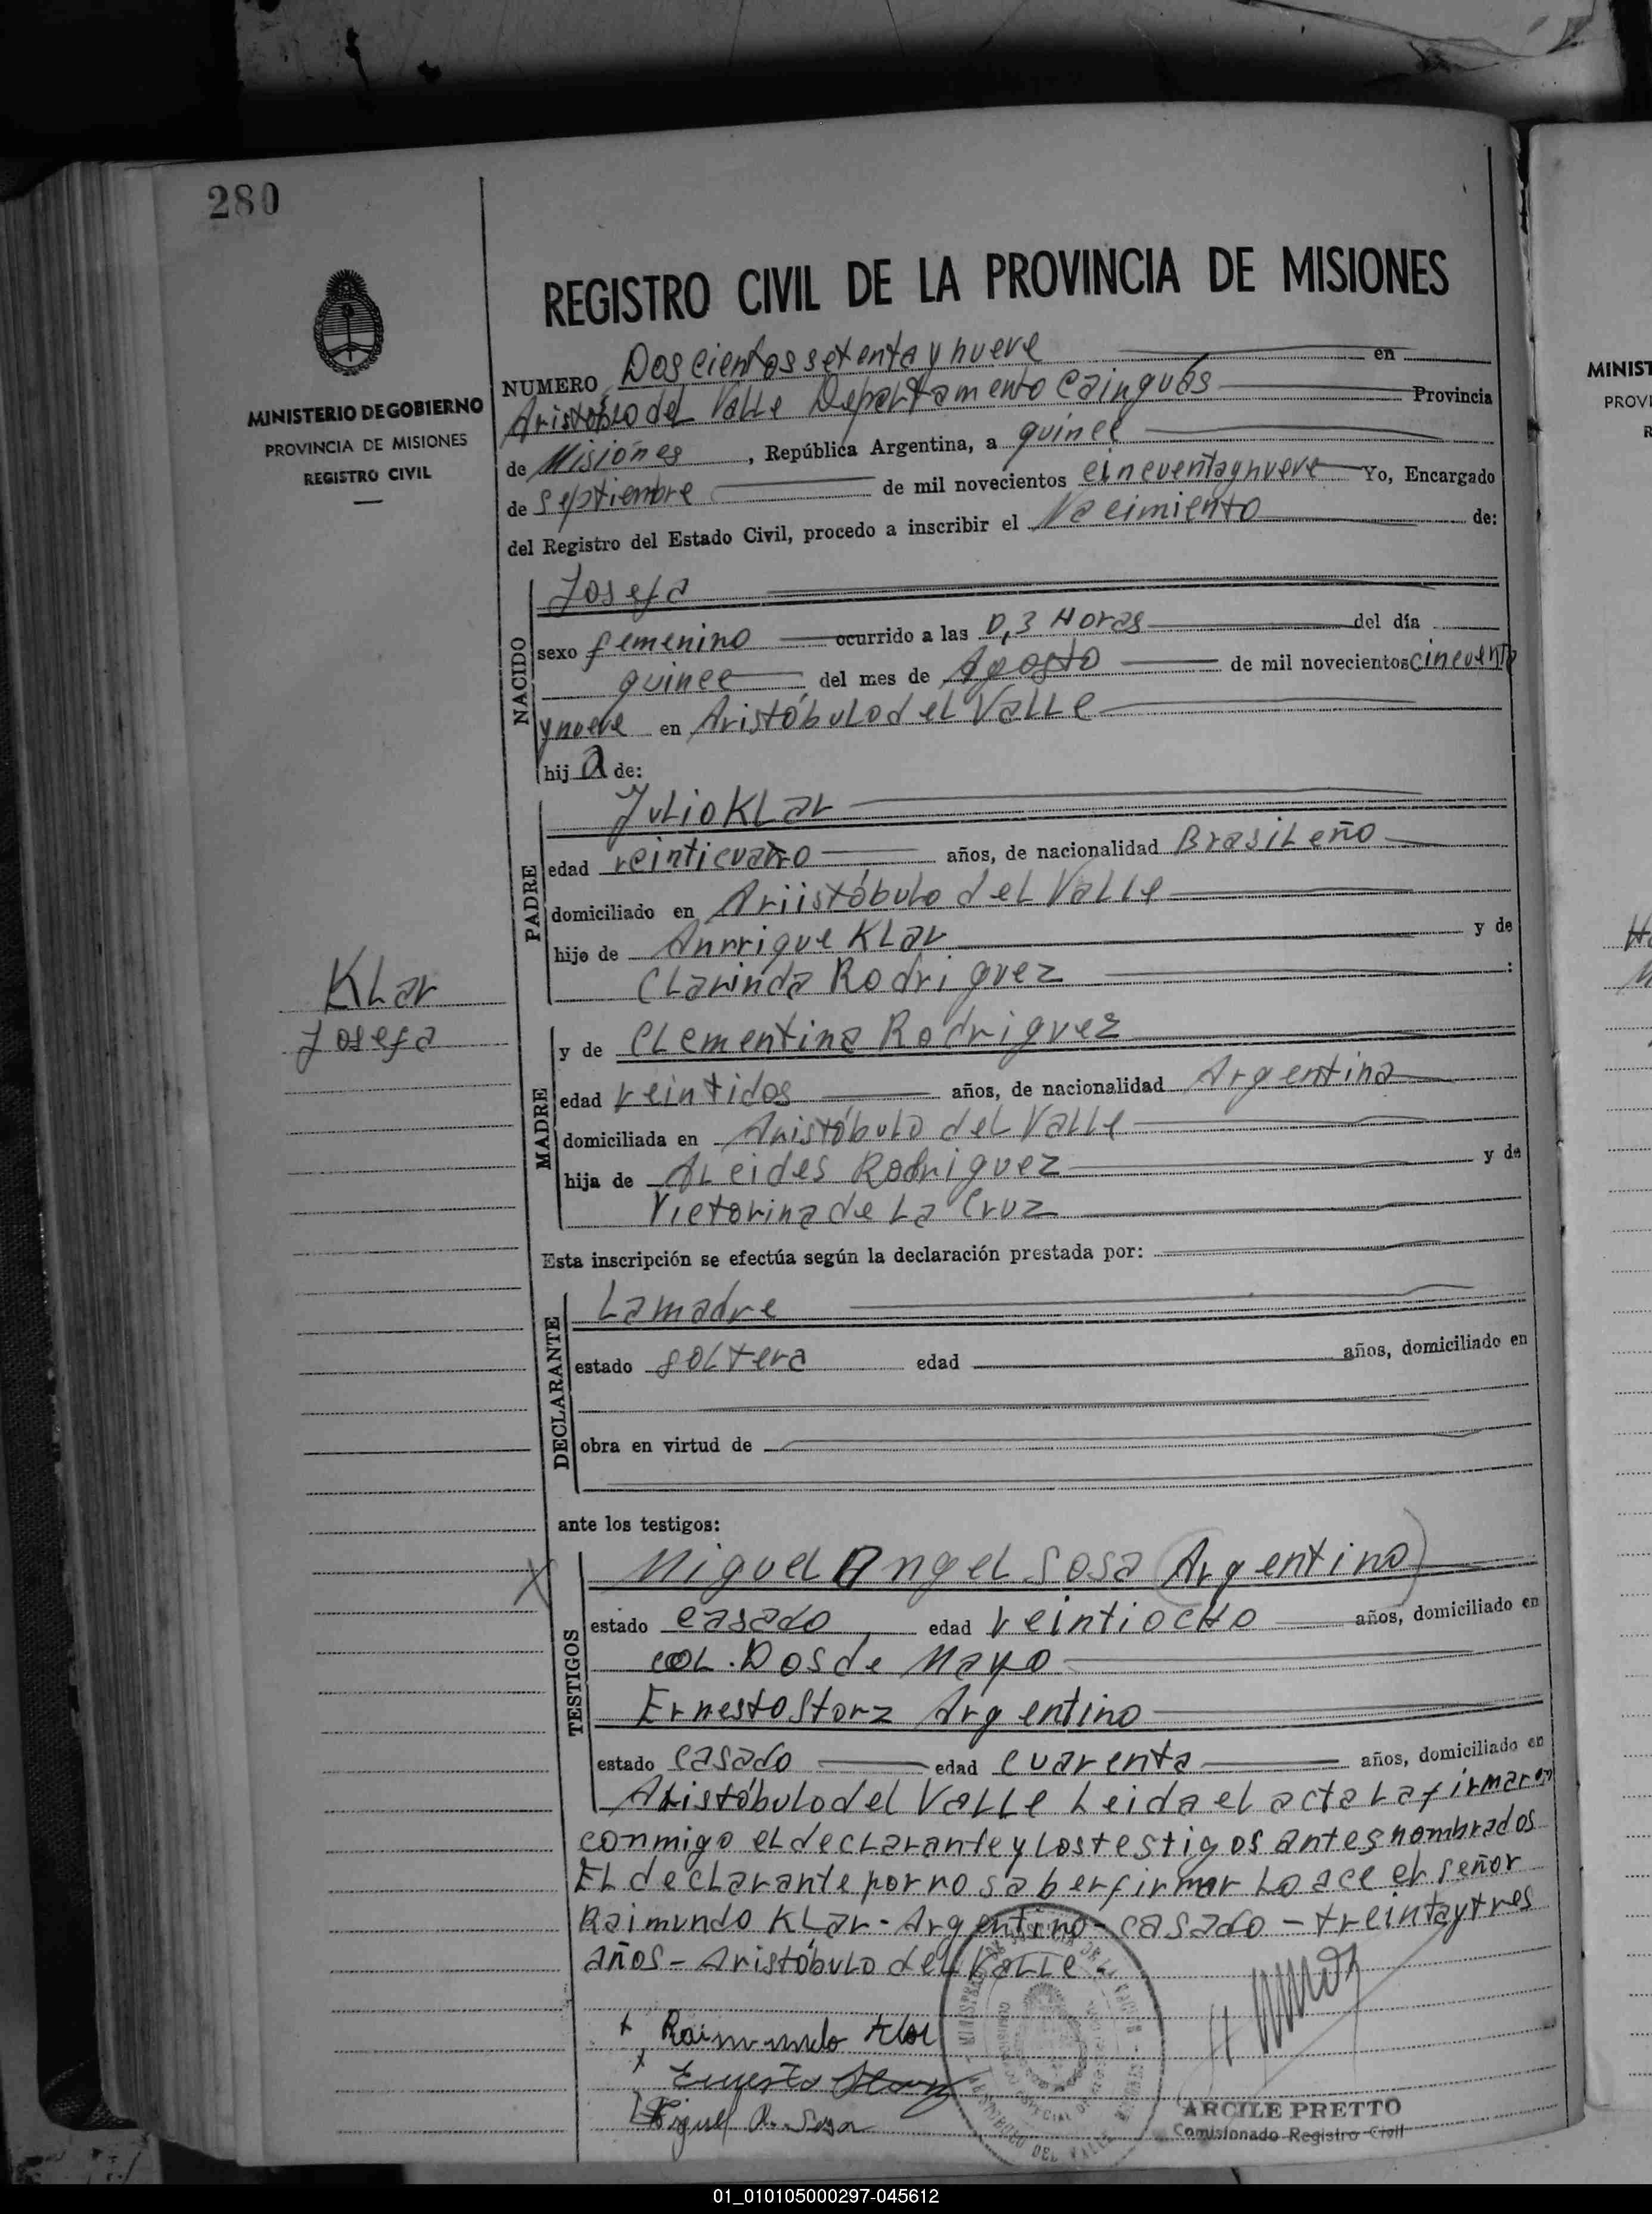 280
MINISTERIO DE GOBIERNO
PROVINCIA DE MISIONES
REGISTRO CIVIL
REGISTRO CIVIL DE LA PROVINCIA DE MISIONES
NUMERO Doscientos setenta y nueve en
Aristóblo del Valle Departamento Cainguás Provincia
de Misiónes, República Argentina, a quince
de septiembre de mil novecientos cincuentaynueve Yo, Encargado
del Registro del Estado Civil, procedo a inscribir el Nacimiento de:
NACIDO
Josefa
sexo femenino ocurrido a las 0,3 Horas del día
quince del mes de Agosto de mil novecientos cincuenta
y nueve en Aristóbulo del Valle
hij a de:
PADRE
Julio Klar
edad veinticuatro años, de nacionalidad Brasileño
domiciliado en Ariistóbulo del Valle
hijo de Anrrique Klar y de
Clarinda Rodriguez :
Klar
Josefa
MADRE
y de Clementina Rodriguez
edad veintidos años, de nacionalidad Argentina
domiciliada en Aristóbulo del Valle
hija de Alcides Rodriguez y de
Victorina de La Cruz
Esta inscripción se efectúa según la declaración prestada por:
DECLARANTE
La madre
estado soltera edad años, domiciliado en
obra en virtud de
ante los testigos:
TESTIGOS
Miguel Angel Sosa (Argentino)
estado casado edad veintiocho años, domiciliado en
col. Dos de Mayo
Ernesto Storz Argentino
estado casado edad cuarenta años, domiciliado en
Aristóbulo del Valle Leida el acta La firmaron
conmigo el declarante y los testigos antes nombrados
El declarante por no saber firmar Lo ace el señor
Raimundo Klar - Argentino - casado - treintaytres
años - Aristóbulo del Valle -
x Raimundo Klar
x Ernesto Storz
Miguel A. Sosa
ARISTOBULO DEL VALLE
ARCILE PRETTO
Comisionado Registro Civil
MINIST
PROVI
R
01_010105000297-045612